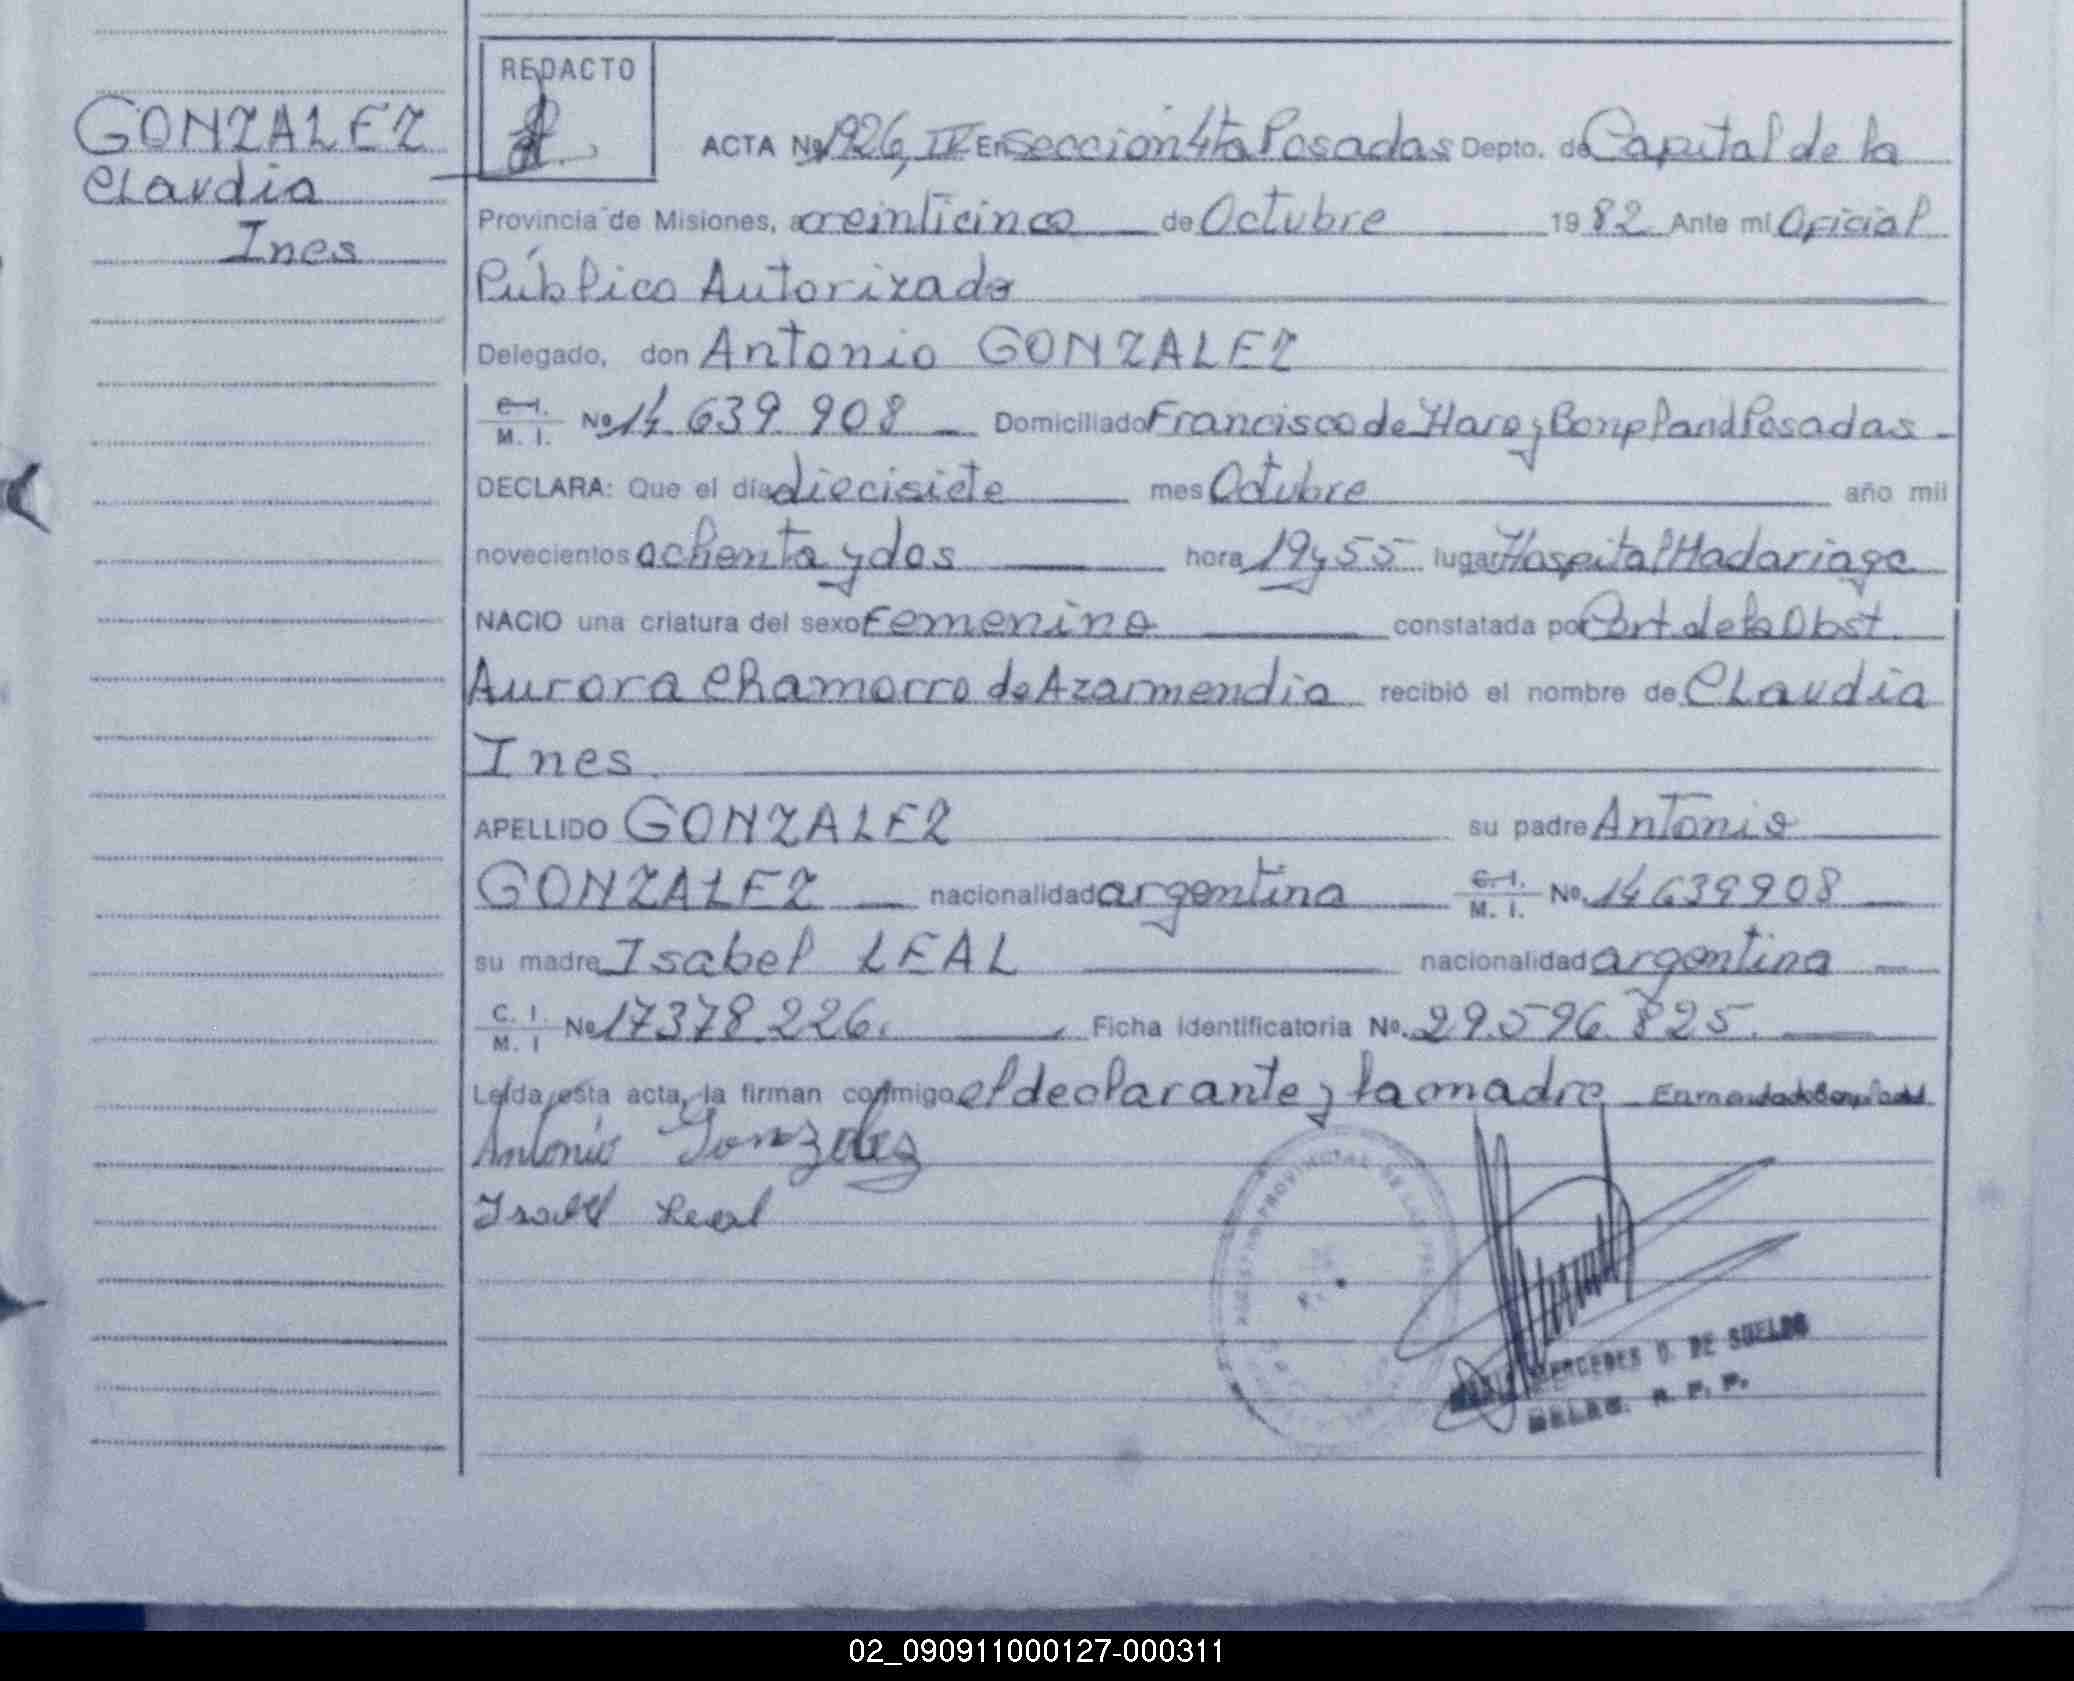 REDACTO
GONZALEZ
Claudia
Ines
ACTA No 1926, IV En Sección 4ta Posadas Depto. de Capital de la
Provincia de Misiones, a veinticinco de Octubre 1982 Ante mí Oficial
Público Autorizado
Delegado, don Antonio GONZALEZ
C. I. M. I. No 14 639 908 Domiciliado Francisco de Haro y Bonpland Posadas
DECLARA: Que el día diecisiete mes Octubre año mil
novecientos ochenta y dos hora 19 y 55 lugar Hospital Madariaga
NACIO una criatura del sexo Femenino constatada por Cert. de la Obst.
Aurora Chamorro de Azarmendia recibió el nombre de Claudia
Ines
APELLIDO GONZALEZ su padre Antonio
GONZALEZ nacionalidad argentina C. I. M. I. No. 14639908
su madre Isabel LEAL nacionalidad argentina
C. I. M. I No 17378.226. Ficha identificatoria No. 29.596.825.
Leída esta acta, la firman conmigo el declarante y la madre Enmendado Bonpland
Antonio Gonzalez
Isabel Leal
REGISTRO PROVINCIAL DE LAS
MERCEDES D. DE SUELDO
DELEG. R. P. P.
02_090911000127-000311